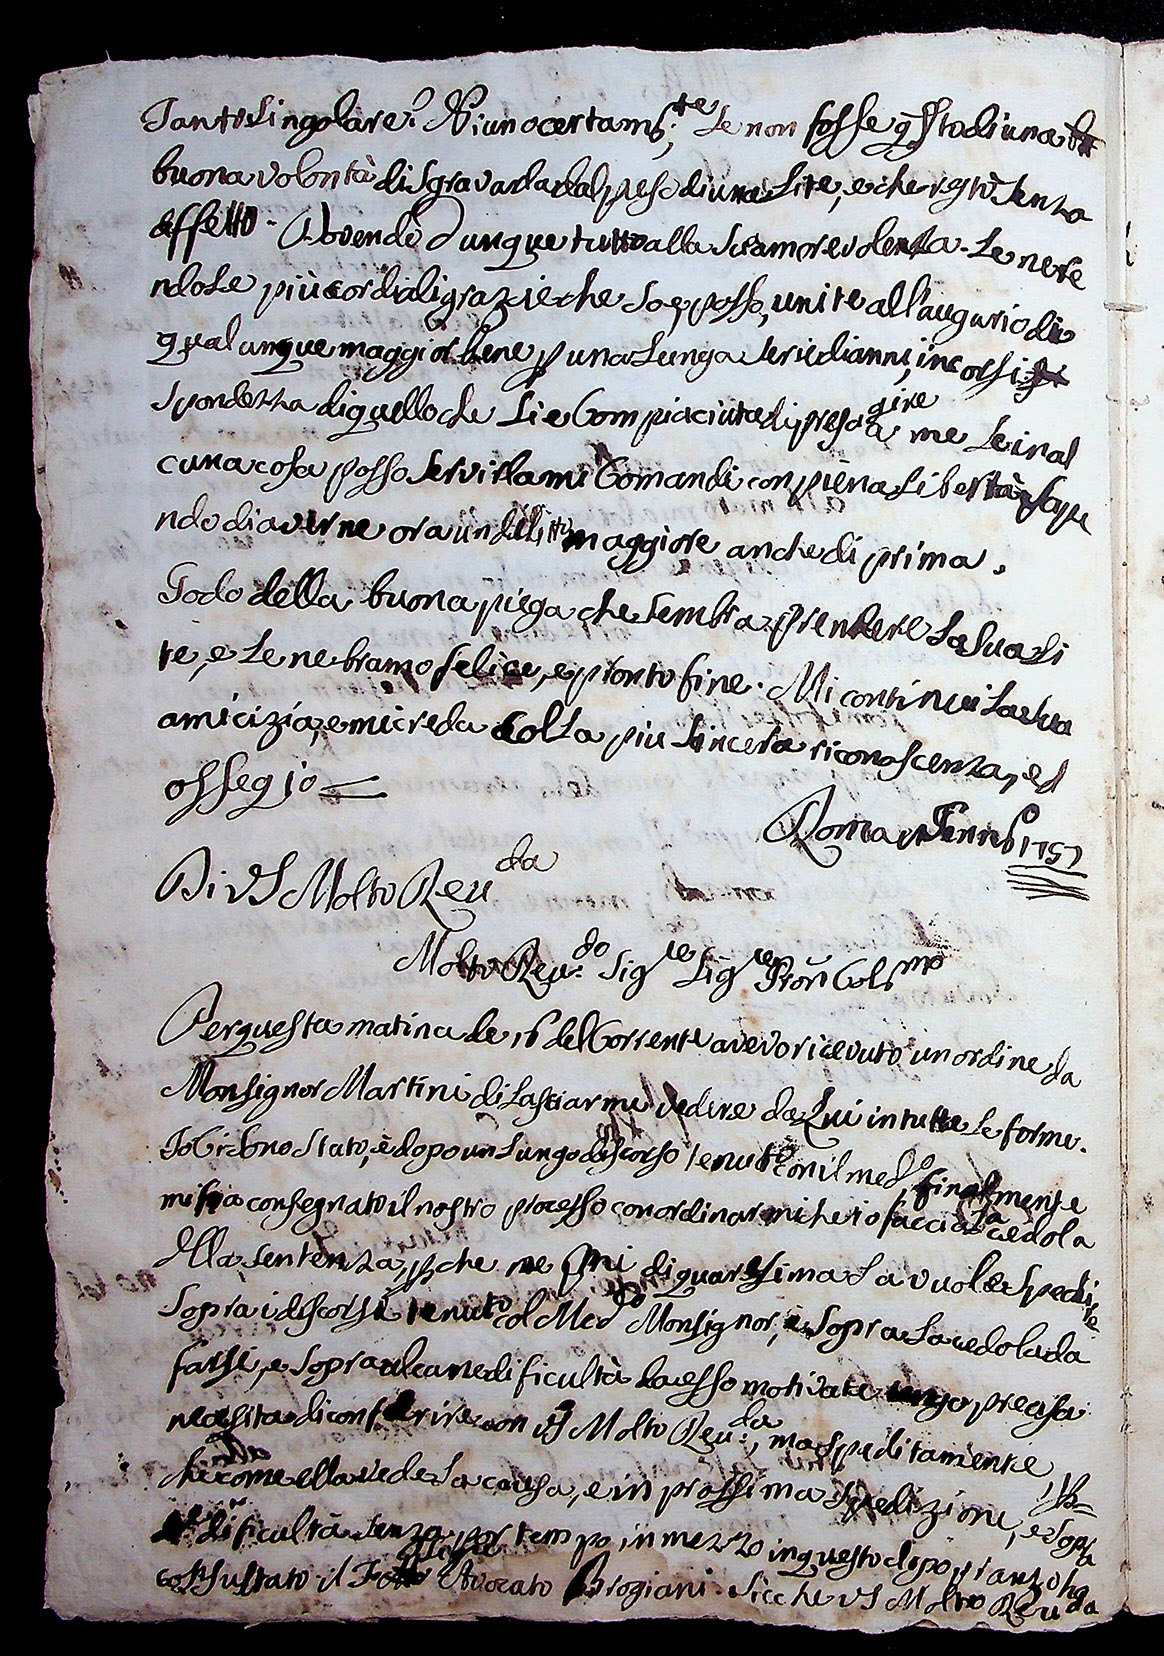 Tanto Singolare? Niuno certam.te se non fosse q.sto di una
buona volontà di Sgravarla dal peso di una Lite, e che restò Senza
effetto. Dovendo dunque tutto alla Sua amorevolenza. Le ne re
ndo Le più cordiali grazie che So, e posso, unite all'augurio di
qualunque maggior bene p una Lunga Serie di anni, in corri
Spondenza di quello che Si è Compiaciuta di presagire a me Se in al
cuna cosa posso Servirla mi Comandi con piena Libertà Sape
ndo di averne ora un diritto maggiore anche di prima.
Godo della buona piega che Sembra prendere La Sua Li
te, e Le ne bramo felice, e pronto fine. Mi continui La Sua
amicizia, e mi creda colla più Sincera riconoscenza, ed
ossegio
Roma p 1757
Di VS Molto Reu.da
Molto Reu.do Sig.re Sig.re Pron Col.mo
Per questa matina de 16 del Corrente avevo ricevuto un ordine da
Monsignor Martini di Lasciarmi vedere da Lui in tutte Le forme.
Io Ci Sono Stato, è dopo un Lungo discorso tenuto con il med.o finalmente
mi ha consegnato il nostro processo con ordinarmi che io faccia La cedola
della Sentenza, p che ne p.mi di quaresima La vuole Spedire
Sopra i discorsi tenuto col Med.o Monsignor, e Sopra La cedola da
farsi, e Sopra alcune dificultà da esso motivate tengo precisa
necessita di conferire con VS Molto Reu.da, ma Speditamente
che come ella vede La causa, e in prossima Spedizione, e Sopra
dificultà Senza por tempo in mezzo in questo dopo pranzo ha
consultato il Avocato Broziani. Sicche VS Molto Reu.da